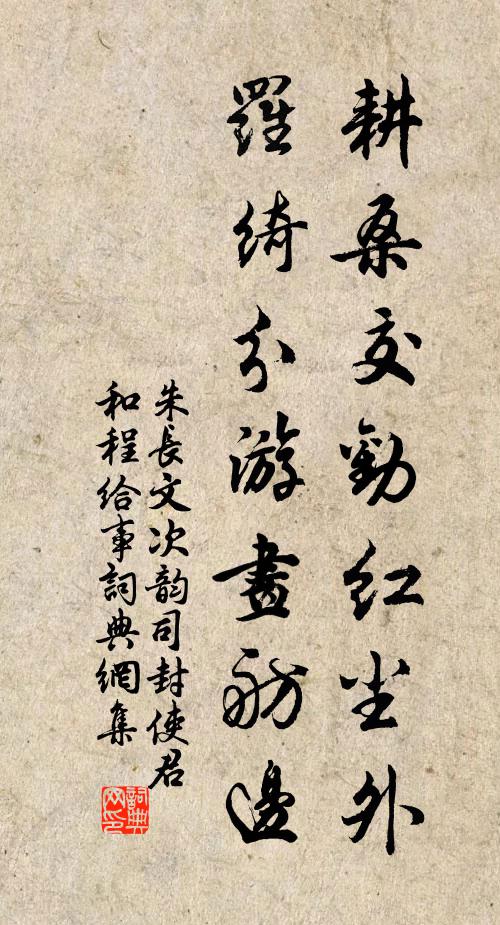 耕桑交勸红尘外
羅綺分游畫舫邊
朱長文次韵司封使君
和程给事詞典網集
詞典网印